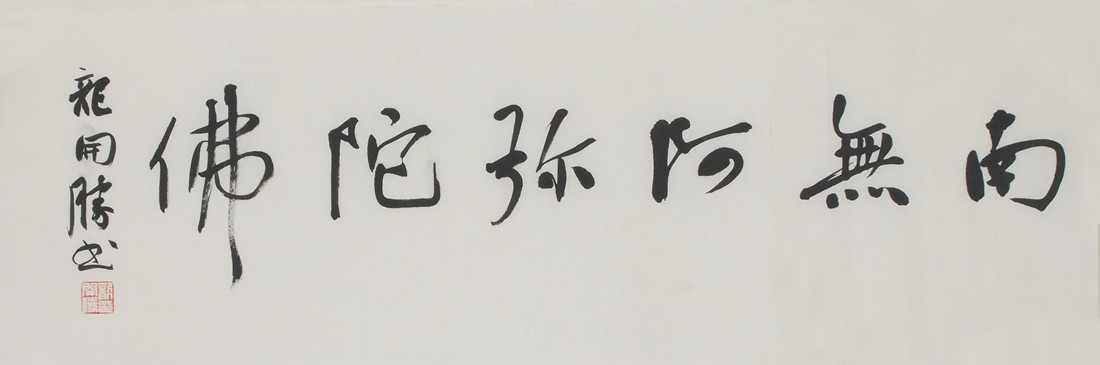 南無阿弥陀佛
龍開勝书